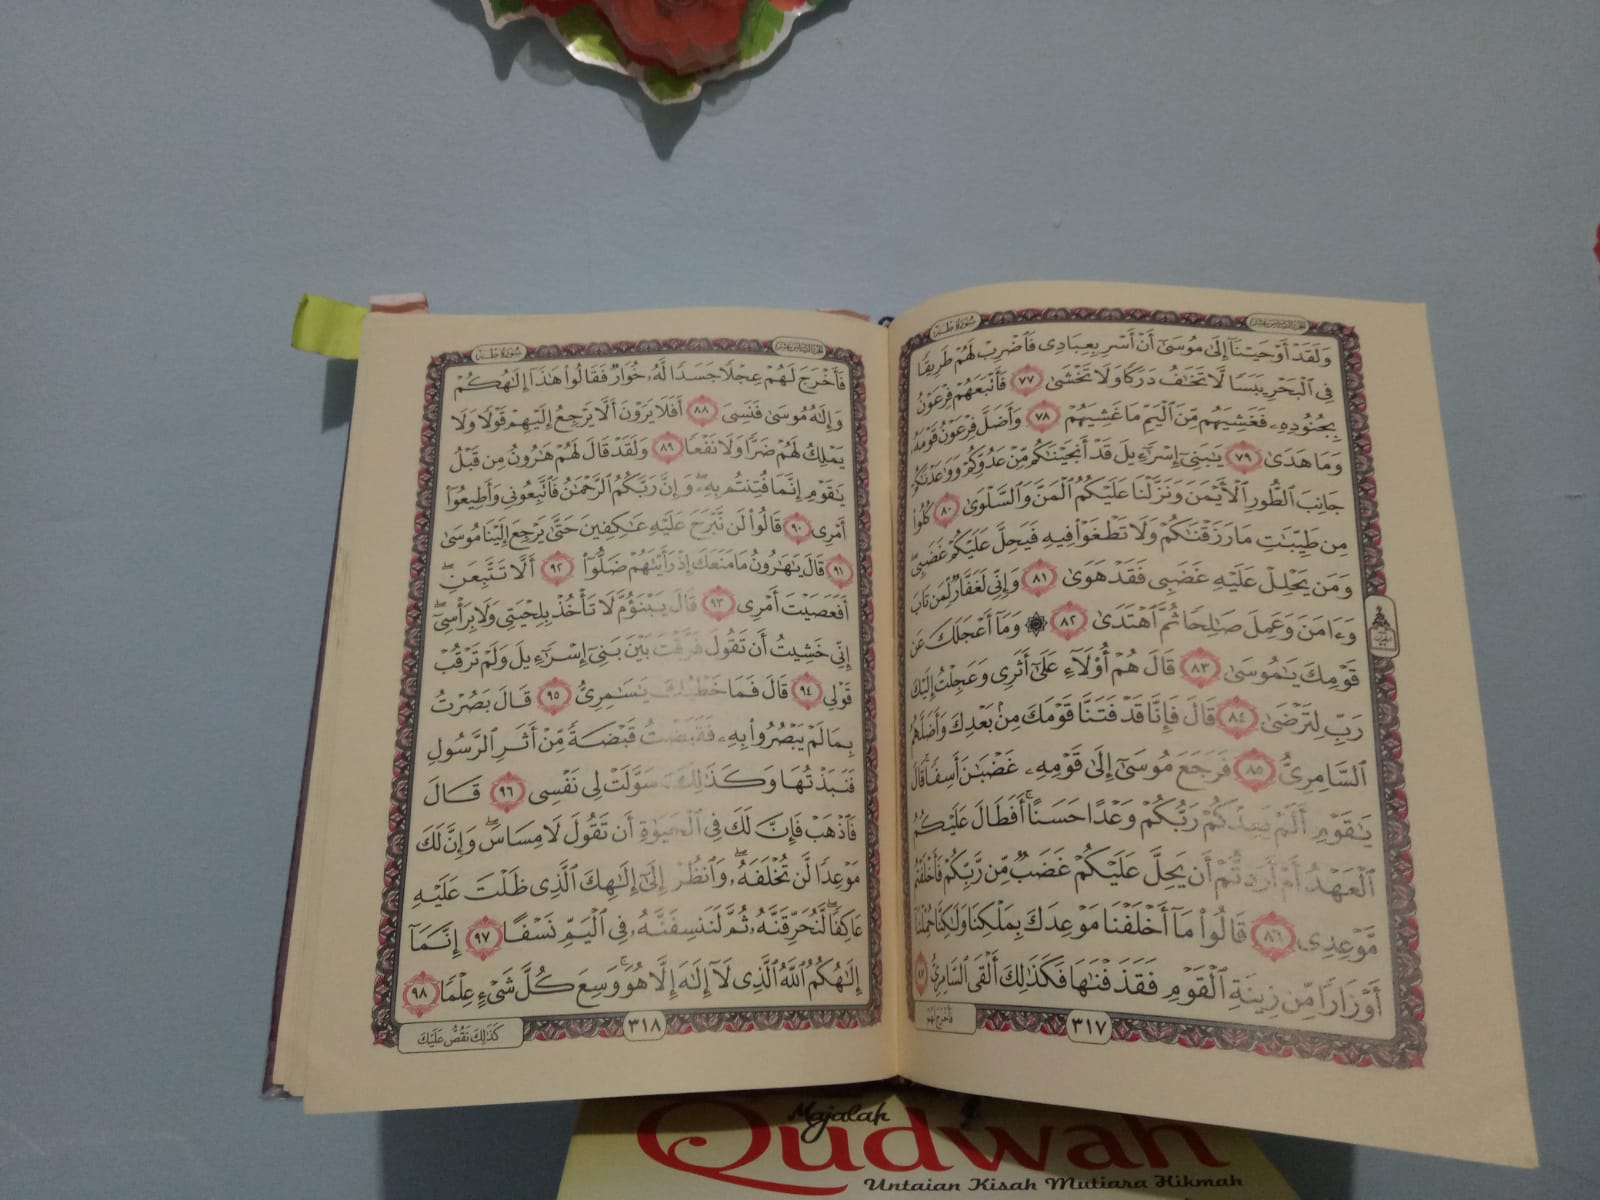 سُورَةُ طٰهٰ
وَلَقَدْ أَوْحَيْنَآ إِلَىٰ مُوسَىٰٓ أَنْ أَسْرِ بِعِبَادِى فَٱضْرِبْ لَهُمْ طَرِيقًا
فِى ٱلْبَحْرِ يَبَسًا لَّا تَخَٰفُ دَرَكًا وَلَا تَخْشَىٰ ٧٧ فَأَتْبَعَهُمْ فِرْعَوْنُ
بِجُنُودِهِۦ فَغَشِيَهُم مِّنَ ٱلْيَمِّ مَا غَشِيَهُمْ ٧٨ وَأَضَلَّ فِرْعَوْنُ قَوْمَهُۥ
وَمَا هَدَىٰ ٧٩ يَٰبَنِىٓ إِسْرَٰٓءِيلَ قَدْ أَنجَيْنَٰكُم مِّنْ عَدُوِّكُمْ وَوَٰعَدْنَٰكُمْ
جَانِبَ ٱلطُّورِ ٱلْأَيْمَنَ وَنَزَّلْنَا عَلَيْكُمُ ٱلْمَنَّ وَٱلسَّلْوَىٰ ٨٠ كُلُوا۟
مِن طَيِّبَٰتِ مَا رَزَقْنَٰكُمْ وَلَا تَطْغَوْا۟ فِيهِ فَيَحِلَّ عَلَيْكُمْ غَضَبِى ۖ
وَمَن يَحْلِلْ عَلَيْهِ غَضَبِى فَقَدْ هَوَىٰ ٨١ وَإِنِّى لَغَفَّارٌ لِّمَن تَابَ
وَءَامَنَ وَعَمِلَ صَٰلِحًا ثُمَّ ٱهْتَدَىٰ ٨٢ ۞ وَمَآ أَعْجَلَكَ عَن
قَوْمِكَ يَٰمُوسَىٰ ٨٣ قَالَ هُمْ أُو۟لَآءِ عَلَىٰٓ أَثَرِى وَعَجِلْتُ إِلَيْكَ
رَبِّ لِتَرْضَىٰ ٨٤ قَالَ فَإِنَّا قَدْ فَتَنَّا قَوْمَكَ مِنۢ بَعْدِكَ وَأَضَلَّهُمُ
ٱلسَّامِرِىُّ ٨٥ فَرَجَعَ مُوسَىٰٓ إِلَىٰ قَوْمِهِۦ غَضْبَٰنَ أَسِفًا ۚ قَالَ
يَٰقَوْمِ أَلَمْ يَعِدْكُمْ رَبُّكُمْ وَعْدًا حَسَنًا ۚ أَفَطَالَ عَلَيْكُمُ
ٱلْعَهْدُ أَمْ أَرَدتُّمْ أَن يَحِلَّ عَلَيْكُمْ غَضَبٌ مِّن رَّبِّكُمْ فَأَخْلَفْتُم
مَّوْعِدِى ٨٦ قَالُوا۟ مَآ أَخْلَفْنَا مَوْعِدَكَ بِمَلْكِنَا وَلَٰكِنَّا حُمِّلْنَآ
أَوْزَارًا مِّن زِينَةِ ٱلْقَوْمِ فَقَذَفْنَٰهَا فَكَذَٰلِكَ أَلْقَى ٱلسَّامِرِىُّ ٨٧
٣١٧
فَأَخْرَجَ لَهُمْ
سُورَةُ طٰهٰ
فَأَخْرَجَ لَهُمْ عِجْلًا جَسَدًا لَّهُۥ خُوَارٌ فَقَالُوا۟ هَٰذَآ إِلَٰهُكُمْ
وَإِلَٰهُ مُوسَىٰ فَنَسِىَ ٨٨ أَفَلَا يَرَوْنَ أَلَّا يَرْجِعُ إِلَيْهِمْ قَوْلًا وَلَا
يَمْلِكُ لَهُمْ ضَرًّا وَلَا نَفْعًا ٨٩ وَلَقَدْ قَالَ لَهُمْ هَٰرُونُ مِن قَبْلُ
يَٰقَوْمِ إِنَّمَا فُتِنتُم بِهِۦ ۖ وَإِنَّ رَبَّكُمُ ٱلرَّحْمَٰنُ فَٱتَّبِعُونِى وَأَطِيعُوٓا۟
أَمْرِى ٩٠ قَالُوا۟ لَن نَّبْرَحَ عَلَيْهِ عَٰكِفِينَ حَتَّىٰ يَرْجِعَ إِلَيْنَا مُوسَىٰ
٩١ قَالَ يَٰهَٰرُونُ مَا مَنَعَكَ إِذْ رَأَيْتَهُمْ ضَلُّوٓا۟ ٩٢ أَلَّا تَتَّبِعَنِ ۖ
أَفَعَصَيْتَ أَمْرِى ٩٣ قَالَ يَبْنَؤُمَّ لَا تَأْخُذْ بِلِحْيَتِى وَلَا بِرَأْسِىٓ ۖ
إِنِّى خَشِيتُ أَن تَقُولَ فَرَّقْتَ بَيْنَ بَنِىٓ إِسْرَٰٓءِيلَ وَلَمْ تَرْقُبْ
قَوْلِى ٩٤ قَالَ فَمَا خَطْبُكَ يَٰسَٰمِرِىُّ ٩٥ قَالَ بَصُرْتُ
بِمَا لَمْ يَبْصُرُوا۟ بِهِۦ فَقَبَضْتُ قَبْضَةً مِّنْ أَثَرِ ٱلرَّسُولِ
فَنَبَذْتُهَا وَكَذَٰلِكَ سَوَّلَتْ لِى نَفْسِى ٩٦ قَالَ
فَٱذْهَبْ فَإِنَّ لَكَ فِى ٱلْحَيَوٰةِ أَن تَقُولَ لَا مِسَاسَ ۖ وَإِنَّ لَكَ
مَوْعِدًا لَّن تُخْلَفَهُۥ ۖ وَٱنظُرْ إِلَىٰٓ إِلَٰهِكَ ٱلَّذِى ظَلْتَ عَلَيْهِ
عَاكِفًا ۖ لَّنُحَرِّقَنَّهُۥ ثُمَّ لَنَنسِفَنَّهُۥ فِى ٱلْيَمِّ نَسْفًا ٩٧ إِنَّمَآ
إِلَٰهُكُمُ ٱللَّهُ ٱلَّذِى لَآ إِلَٰهَ إِلَّا هُوَ ۚ وَسِعَ كُلَّ شَىْءٍ عِلْمًا ٩٨
٣١٨
كَذَٰلِكَ نَقُصُّ عَلَيْكَ
Majalah
Qudwah
Untaian Kisah Mutiara Hikmah